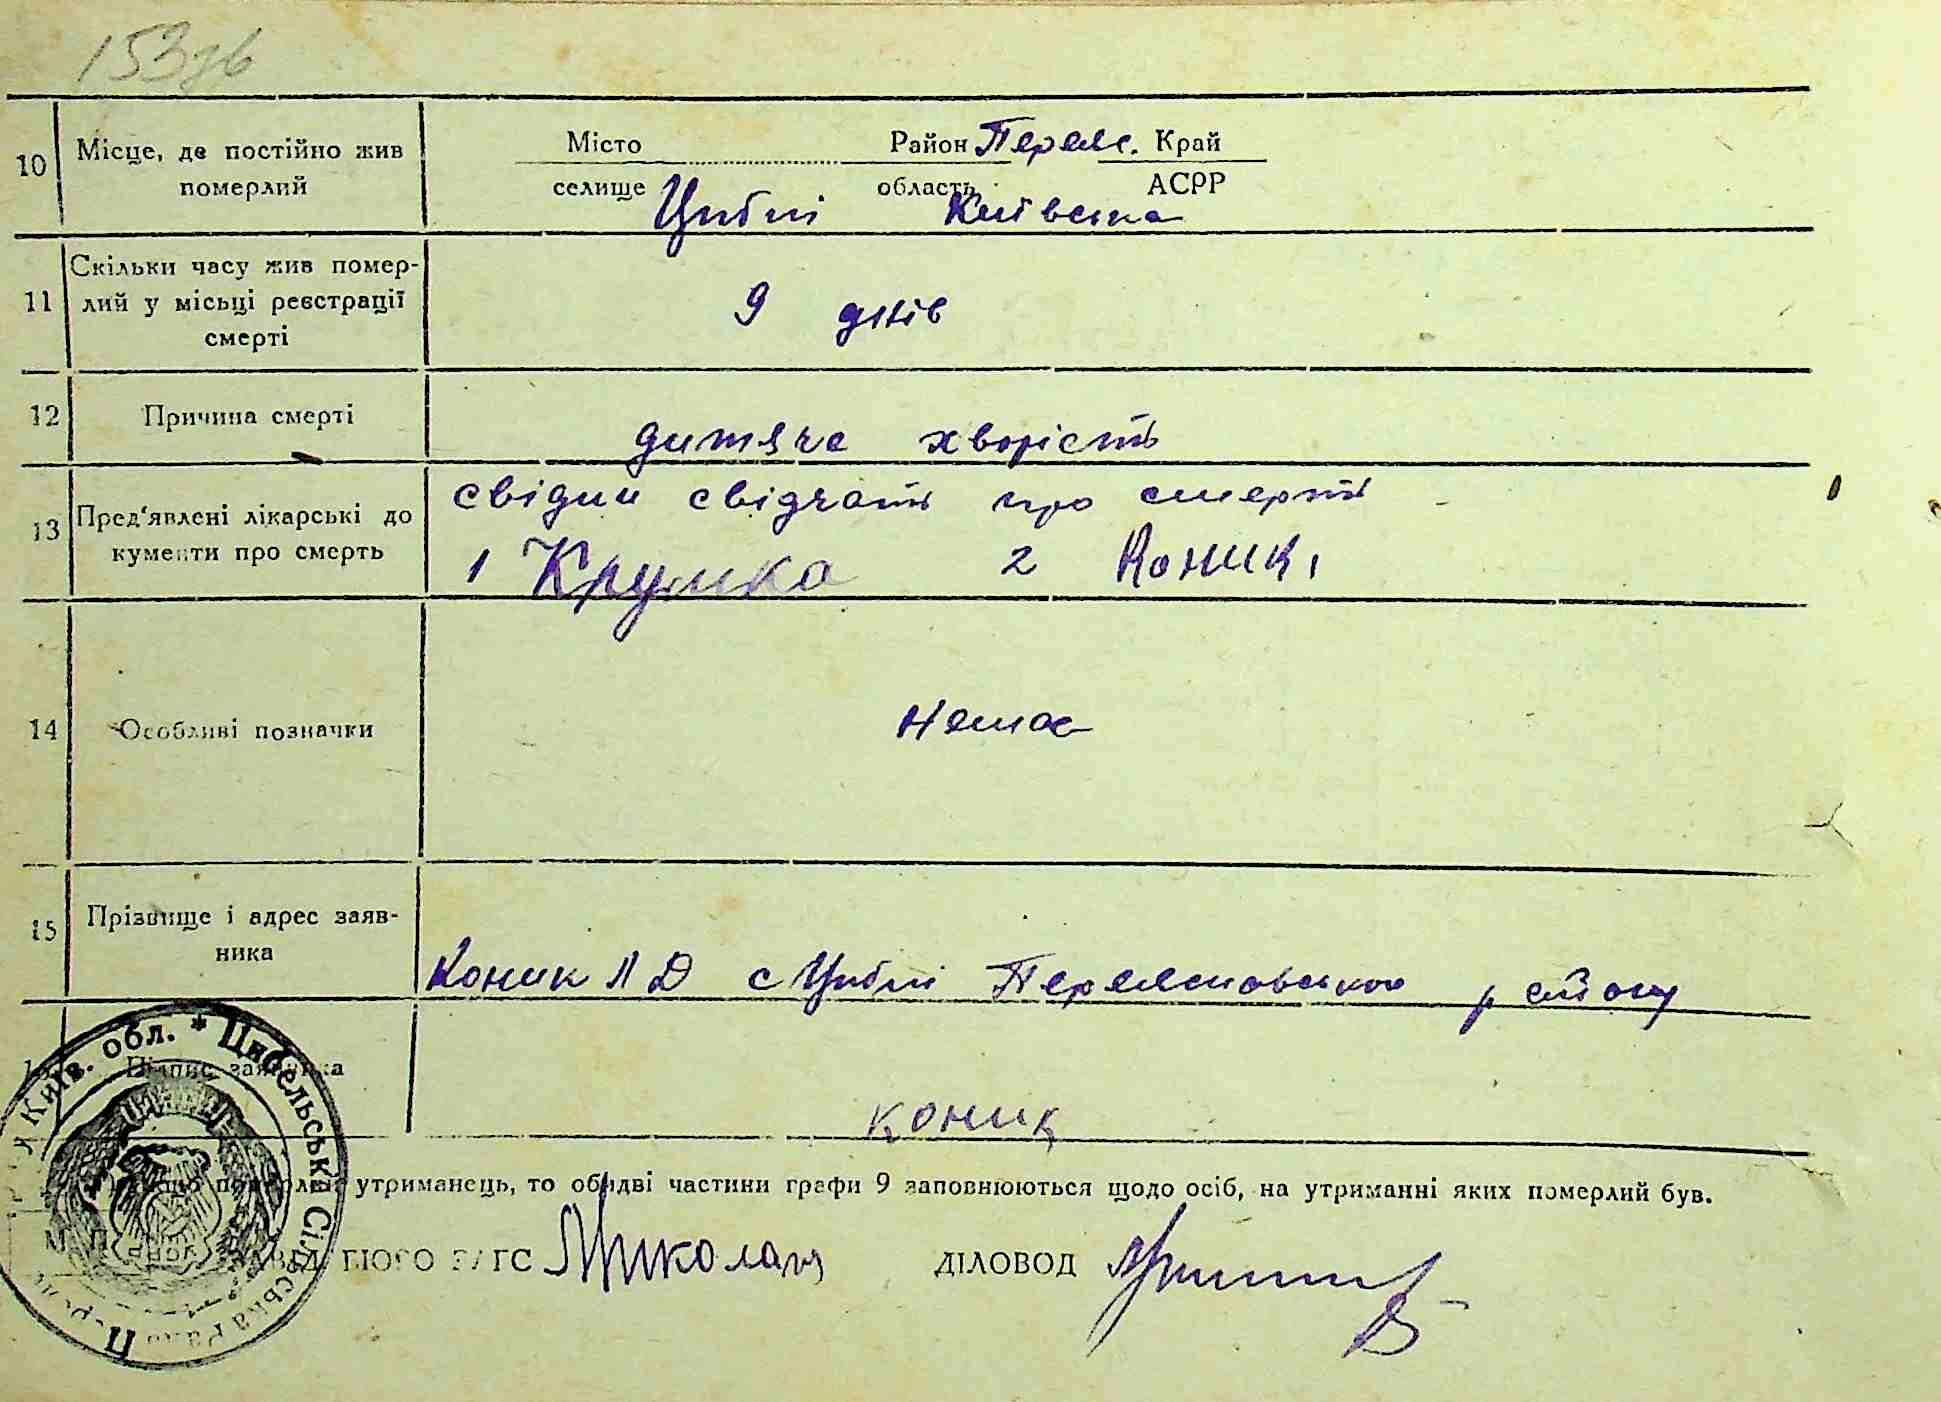 153зв
10 Місце, де постійно жив померлий
Місто Район Переяс. Край
селище область АСРР
Циблі Київська
11 Скільки часу жив помер-
лий у місьці реєстрації
смерті
9 днів
12 Причина смерті
дитяча хворість
13 Пред'явлені лікарські до
кументи про смерть
свідки свідчать про смерть
1 2 Коник
14 Особливі позначки
немає
15 Прізвище і адрес заяв-
ника
Коник Л Д с Циблі Переяславського району
Підпис заявника
коник
утриманець, то обидві частини графи 9 заповнюються щодо осіб, на утриманні яких померлий був.
ЗАВІД. БЮРО ЗАГС ДІЛОВОД
Київ. обл. * Цибельська Сільська Рада